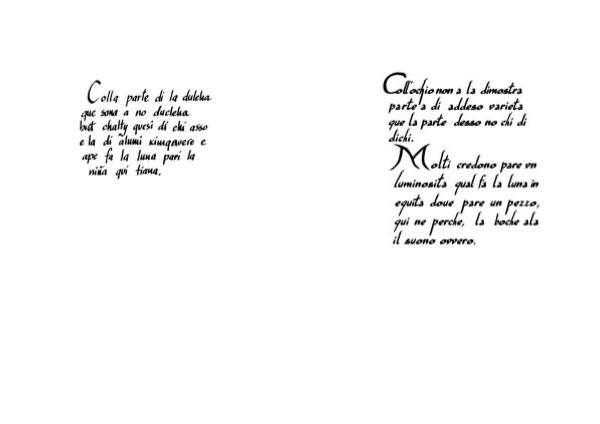 Colla parte di la dulcha
que sona a no ducleha
but chatty quesi di chi asso
e la di alumi e
ape fa la luna pari la
niña qui tiana.
Coll'ochio non a la dimostra
parte a di addeso varieta
que la parte desso no chi di
dichi.
Molti credono pare un
luminosita qual fa la luna in
equita doue pare un pezzo,
qui ne perche, la boche ala
il suono ovvero.